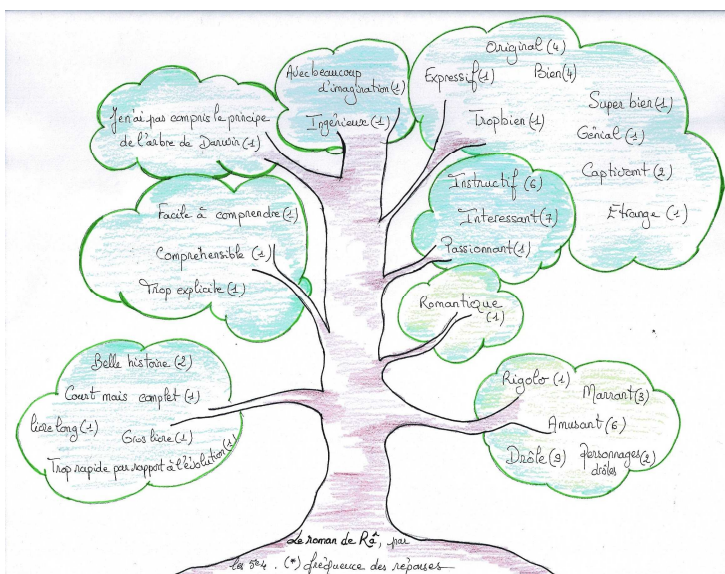 Je n'ai pas compris le principe
de l'arbre de Darwin (1)
Avec beaucoup
d'imagination (1)
Ingénieux (1)
Original (4)
Expressif (1)
Bien (4)
Super bien (1)
Trop bien (1)
Génial (1)
Captivant (2)
Etrange (1)
Facile à comprendre (1)
Compréhensible (1)
Trop explicite (1)
Instructif (6)
Interessant (7)
Passionnant (1)
Romantique
(1)
Belle histoire (2)
Court mais complet (1)
livre long (1)
Gros livre (1)
Trop rapide par rapport à l'évolution (1)
Rigolo (1)
Marrant (3)
Amusant (6)
Drôle (9)
Personnages
drôles (2)
Le roman de Râ, par
les 5e4. (*) fréquence des réponses